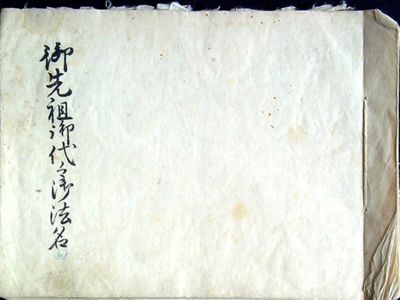 御先祖御代々御法名